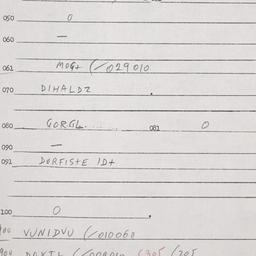 050 0
060 —
061 MOG+ (/029010
070 DIHALDZ
080 GORGL. 081 0
090 —
091 DORFISTE ID+
100 0
VUNIDVU (/010060